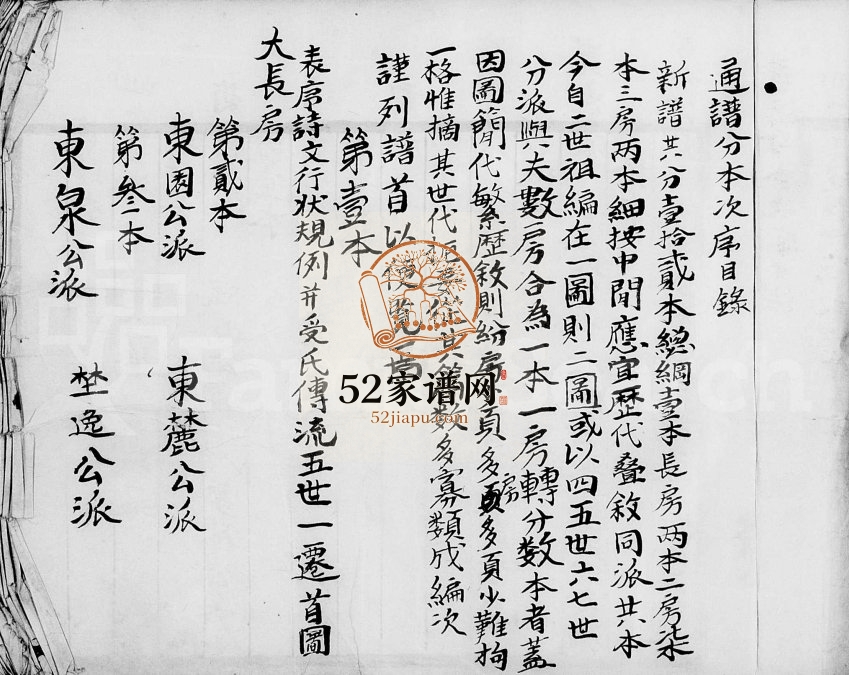 通譜分本次序目錄
新譜共分壹拾貳本總綱壹本長房两本二房柒
本三房两本細按中間應宜歷代叠敘同派共本
今自二世祖編在一圖則二圖或以四五世六七世
分派與夫數房合為一本一房轉分数本者蓋
因圖簡代繁歷敘則紛房多頁多頁少難拘
一格惟摘其世代
其
数多寡類成編次
謹列譜首以便覧
第壹本
表序詩文行狀規例并受氏傳流五世一遷首圖
大長房
第貳本
東園公派 東麓公派
第叁本
東泉公派 埜逸公派
52家谱网
52jiapu.com